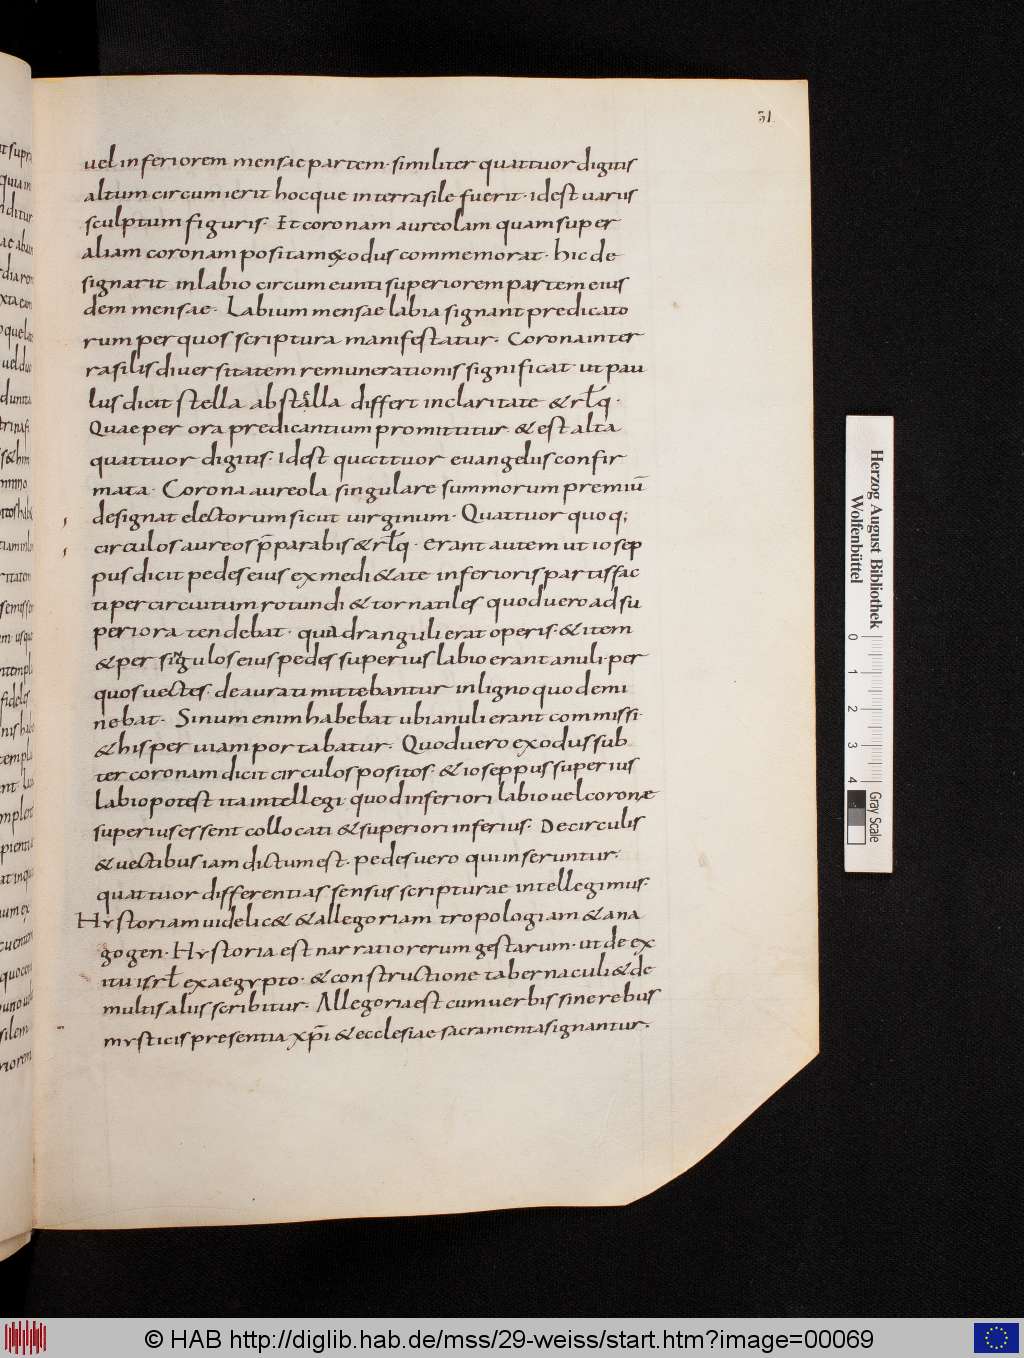 31
uel inferiorem mensae partem· similiter quattuor digitis
altum circumierit hocque interrasile fuerit· idest variis
sculptum figuris· Et coronam aureolam quam super
aliam coronam positam exodus commemorat· hic de
signarit in labio circumeunti superiorem partem eius
dem mensae· Labium mensae labia signant predicato
rum per quos scriptura manifestatur· Corona inter
rasilis diuersitatem remunerationis significat· ut pau
lus dicit stella ab stella differt in claritate & rłq·
Quae per ora predicantium promittitur· & est alta
quattuor digitis· Idest quattuor euangeliis confir
mata· Corona aureola singulare summorum premiū
designat electorum sicut uirginum· Quattuor quoq;
circulos aureos p̄parabis & rłq· erant autem ut iosep
pus dicit pedes eius ex medi&ate inferioris partis fac
ti per circuitum rotundi & tornatiles quod uero ad su
periora tendebat· quadranguli erat operis· & item
& per singulos eius pedes superius labio erant anuli· per
quos uectes· deaurati mittebantur in ligno quod emi
nebat· Sinum enim habebat ubi anuli erant commissi·
& his per uiam portabatur· Quod uero exodus sub
ter coronam dicit circulos positos· & ioseppus superius
labio potest ita intellegi quod inferiori labio uel coronæ
superius essent collocati & superiori inferius· De circulis
& uectibus iam dictum est· pedes uero qui inseruntur·
quattuor differentias sensus scripturae intellegimus·
Hystoriam uidelic& & allegoriam tropologiam & ana
gogen· Hystoria est narratio rerum gestarum· ut de ex
itu isrł ex aegypto· & constructione tabernaculi & de
multis aliis scribitur· Allegoria est cum uerbis siue rebus
mysticis presentia xp̄i & ecclesiae sacramenta signantur·
Herzog August Bibliothek
Wolfenbüttel
0 1 2 3 4
Gray Scale
© HAB http://diglib.hab.de/mss/29-weiss/start.htm?image=00069